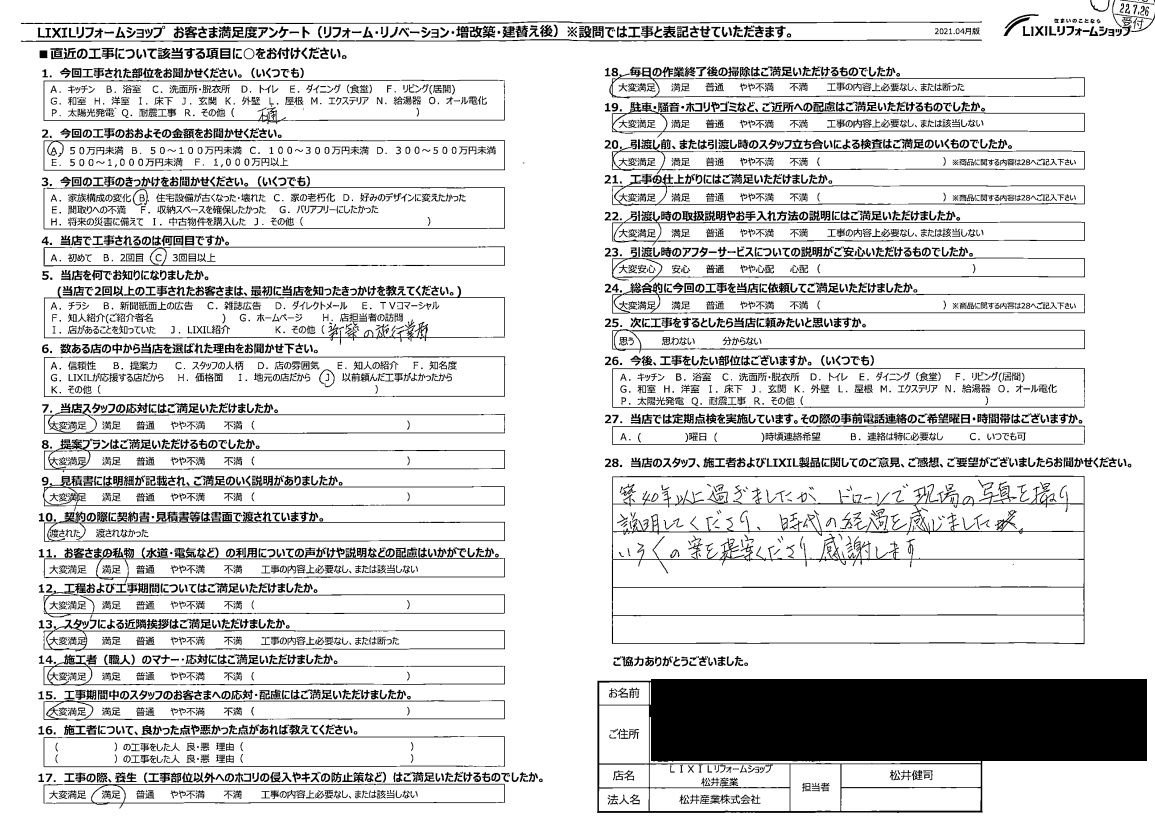 LIXILリフォームショップ お客さま満足度アンケート（リフォーム・リノベーション・増改築・建替え後）※設問では工事と表記させていただきます。
2021.04月版
住まいのことなら
LIXILリフォームショップ
22.7.26
受付
■直近の工事について該当する項目に○をお付けください。
1．今回工事された部位をお聞かせください。（いくつでも）
A．キッチン B．浴室 C．洗面所・脱衣所 D．トイレ E．ダイニング（食堂） F．リビング(居間)
G．和室 H．洋室 I．床下 J．玄関 K．外壁 L．屋根 M．エクステリア N．給湯器 O．オール電化
P．太陽光発電 Q．耐震工事 R．その他（ 樋 ）
2．今回の工事のおおよその金額をお聞かせください。
A．50万円未満 B．50～100万円未満 C．100～300万円未満 D．300～500万円未満
E．500～1,000万円未満 F．1,000万円以上
3．今回の工事のきっかけをお聞かせください。（いくつでも）
A．家族構成の変化 B．住宅設備が古くなった・壊れた C．家の老朽化 D．好みのデザインに変えたかった
E．間取りへの不満 F．収納スペースを確保したかった G．バリアフリーにしたかった
H．将来の災害に備えて I．中古物件を購入した J．その他（ ）
4．当店で工事されるのは何回目ですか。
A．初めて B．2回目 C．3回目以上
5．当店を何でお知りになりましたか。
(当店で2回以上の工事されたお客さまは、最初に当店を知ったきっかけを教えてください。)
A．チラシ B．新聞紙面上の広告 C．雑誌広告 D．ダイレクトメール E．TVコマーシャル
F．知人紹介(ご紹介者名 ) G．ホームページ H．店担当者の訪問
I．店があることを知っていた J．LIXIL紹介 K．その他（新築の施行業者
6．数ある店の中から当店を選ばれた理由をお聞かせ下さい。
A．信頼性 B．提案力 C．スタッフの人柄 D．店の雰囲気 E．知人の紹介 F．知名度
G．LIXILが応援する店だから H．価格面 I．地元の店だから J．以前頼んだ工事がよかったから
K．その他（ ）
7．当店スタッフの応対にはご満足いただけましたか。
大変満足 満足 普通 やや不満 不満（ ）
8．提案プランはご満足いただけるものでしたか。
大変満足 満足 普通 やや不満 不満（ ）
9．見積書には明細が記載され、ご満足のいく説明がありましたか。
大変満足 満足 普通 やや不満 不満
10．契約の際に契約書・見積書等は書面で渡されていますか。
渡された 渡されなかった
11．お客さまの私物（水道・電気など）の利用についての声がけや説明などの配慮はいかがでしたか。
大変満足 満足 普通 やや不満 不満 工事の内容上必要なし、または該当しない
12．工程および工事期間についてはご満足いただけましたか。
大変満足 満足 普通 やや不満 不満（ ）
13．スタッフによる近隣挨拶はご満足いただけましたか。
大変満足 満足 普通 やや不満 不満 工事の内容上必要なし、または断った
14．施工者（職人）のマナー・応対にはご満足いただけましたか。
大変満足 満足 普通 やや不満 不満（ ）
15．工事期間中のスタッフのお客さまへの応対・配慮にはご満足いただけましたか。
大変満足 満足 普通 やや不満 不満（ ）
16．施工者について、良かった点や悪かった点があれば教えてください。
（ ）の工事をした人 良・悪 理由（ ）
（ ）の工事をした人 良・悪 理由（ ）
17．工事の際、養生（工事部位以外へのホコリの侵入やキズの防止策など）はご満足いただけるものでしたか。
大変満足 満足 普通 やや不満 不満 工事の内容上必要なし、または該当しない
18．毎日の作業終了後の掃除はご満足いただけるものでしたか。
大変満足 満足 普通 やや不満 不満 工事の内容上必要なし、または断った
19．駐車・騒音・ホコリやゴミなど、ご近所への配慮はご満足いただけるものでしたか。
大変満足 満足 普通 やや不満 不満 工事の内容上必要なし、または該当しない
20．引渡し前、または引渡し時のスタッフ立ち合いによる検査はご満足のいくものでしたか。
大変満足 満足 普通 やや不満 不満（ ）※商品に関する内容は28へご記入下さい
21．工事の仕上がりにはご満足いただけましたか。
大変満足 満足 普通 やや不満 不満（ ）※商品に関する内容は28へご記入下さい
22．引渡し時の取扱説明やお手入れ方法の説明にはご満足いただけましたか。
大変満足 満足 普通 やや不満 不満 工事の内容上必要なし、または該当しない
23．引渡し時のアフターサービスについての説明がご安心いただけるものでしたか。
大変安心 安心 普通 やや心配 心配（ ）
24．総合的に今回の工事を当店に依頼してご満足いただけましたか。
大変満足 満足 普通 やや不満 不満（ ）※商品に関する内容は28へご記入下さい
25．次に工事をするとしたら当店に頼みたいと思いますか。
思う 思わない 分からない
26．今後、工事をしたい部位はございますか。（いくつでも）
A．キッチン B．浴室 C．洗面所・脱衣所 D．トイレ E．ダイニング（食堂） F．リビング(居間)
G．和室 H．洋室 I．床下 J．玄関 K．外壁 L．屋根 M．エクステリア N．給湯器 O．オール電化
P．太陽光発電 Q．耐震工事 R．その他（ ）
27．当店では定期点検を実施しています。その際の事前電話連絡のご希望曜日・時間帯はございますか。
A．( )曜日（ ）時頃連絡希望 B．連絡は特に必要なし C．いつでも可
28．当店のスタッフ、施工者およびLIXIL製品に関してのご意見、ご感想、ご要望がございましたらお聞かせください。
築40年以上過ぎましたが、ドローンで現場の写真を撮り
説明してくださり、時代の経過を感じました。
いろくの案を提案くださり感謝します
ご協力ありがとうございました。
お名前
ご住所
店名 LIXILリフォームショップ 松井産業 担当者 松井健司
法人名 松井産業株式会社